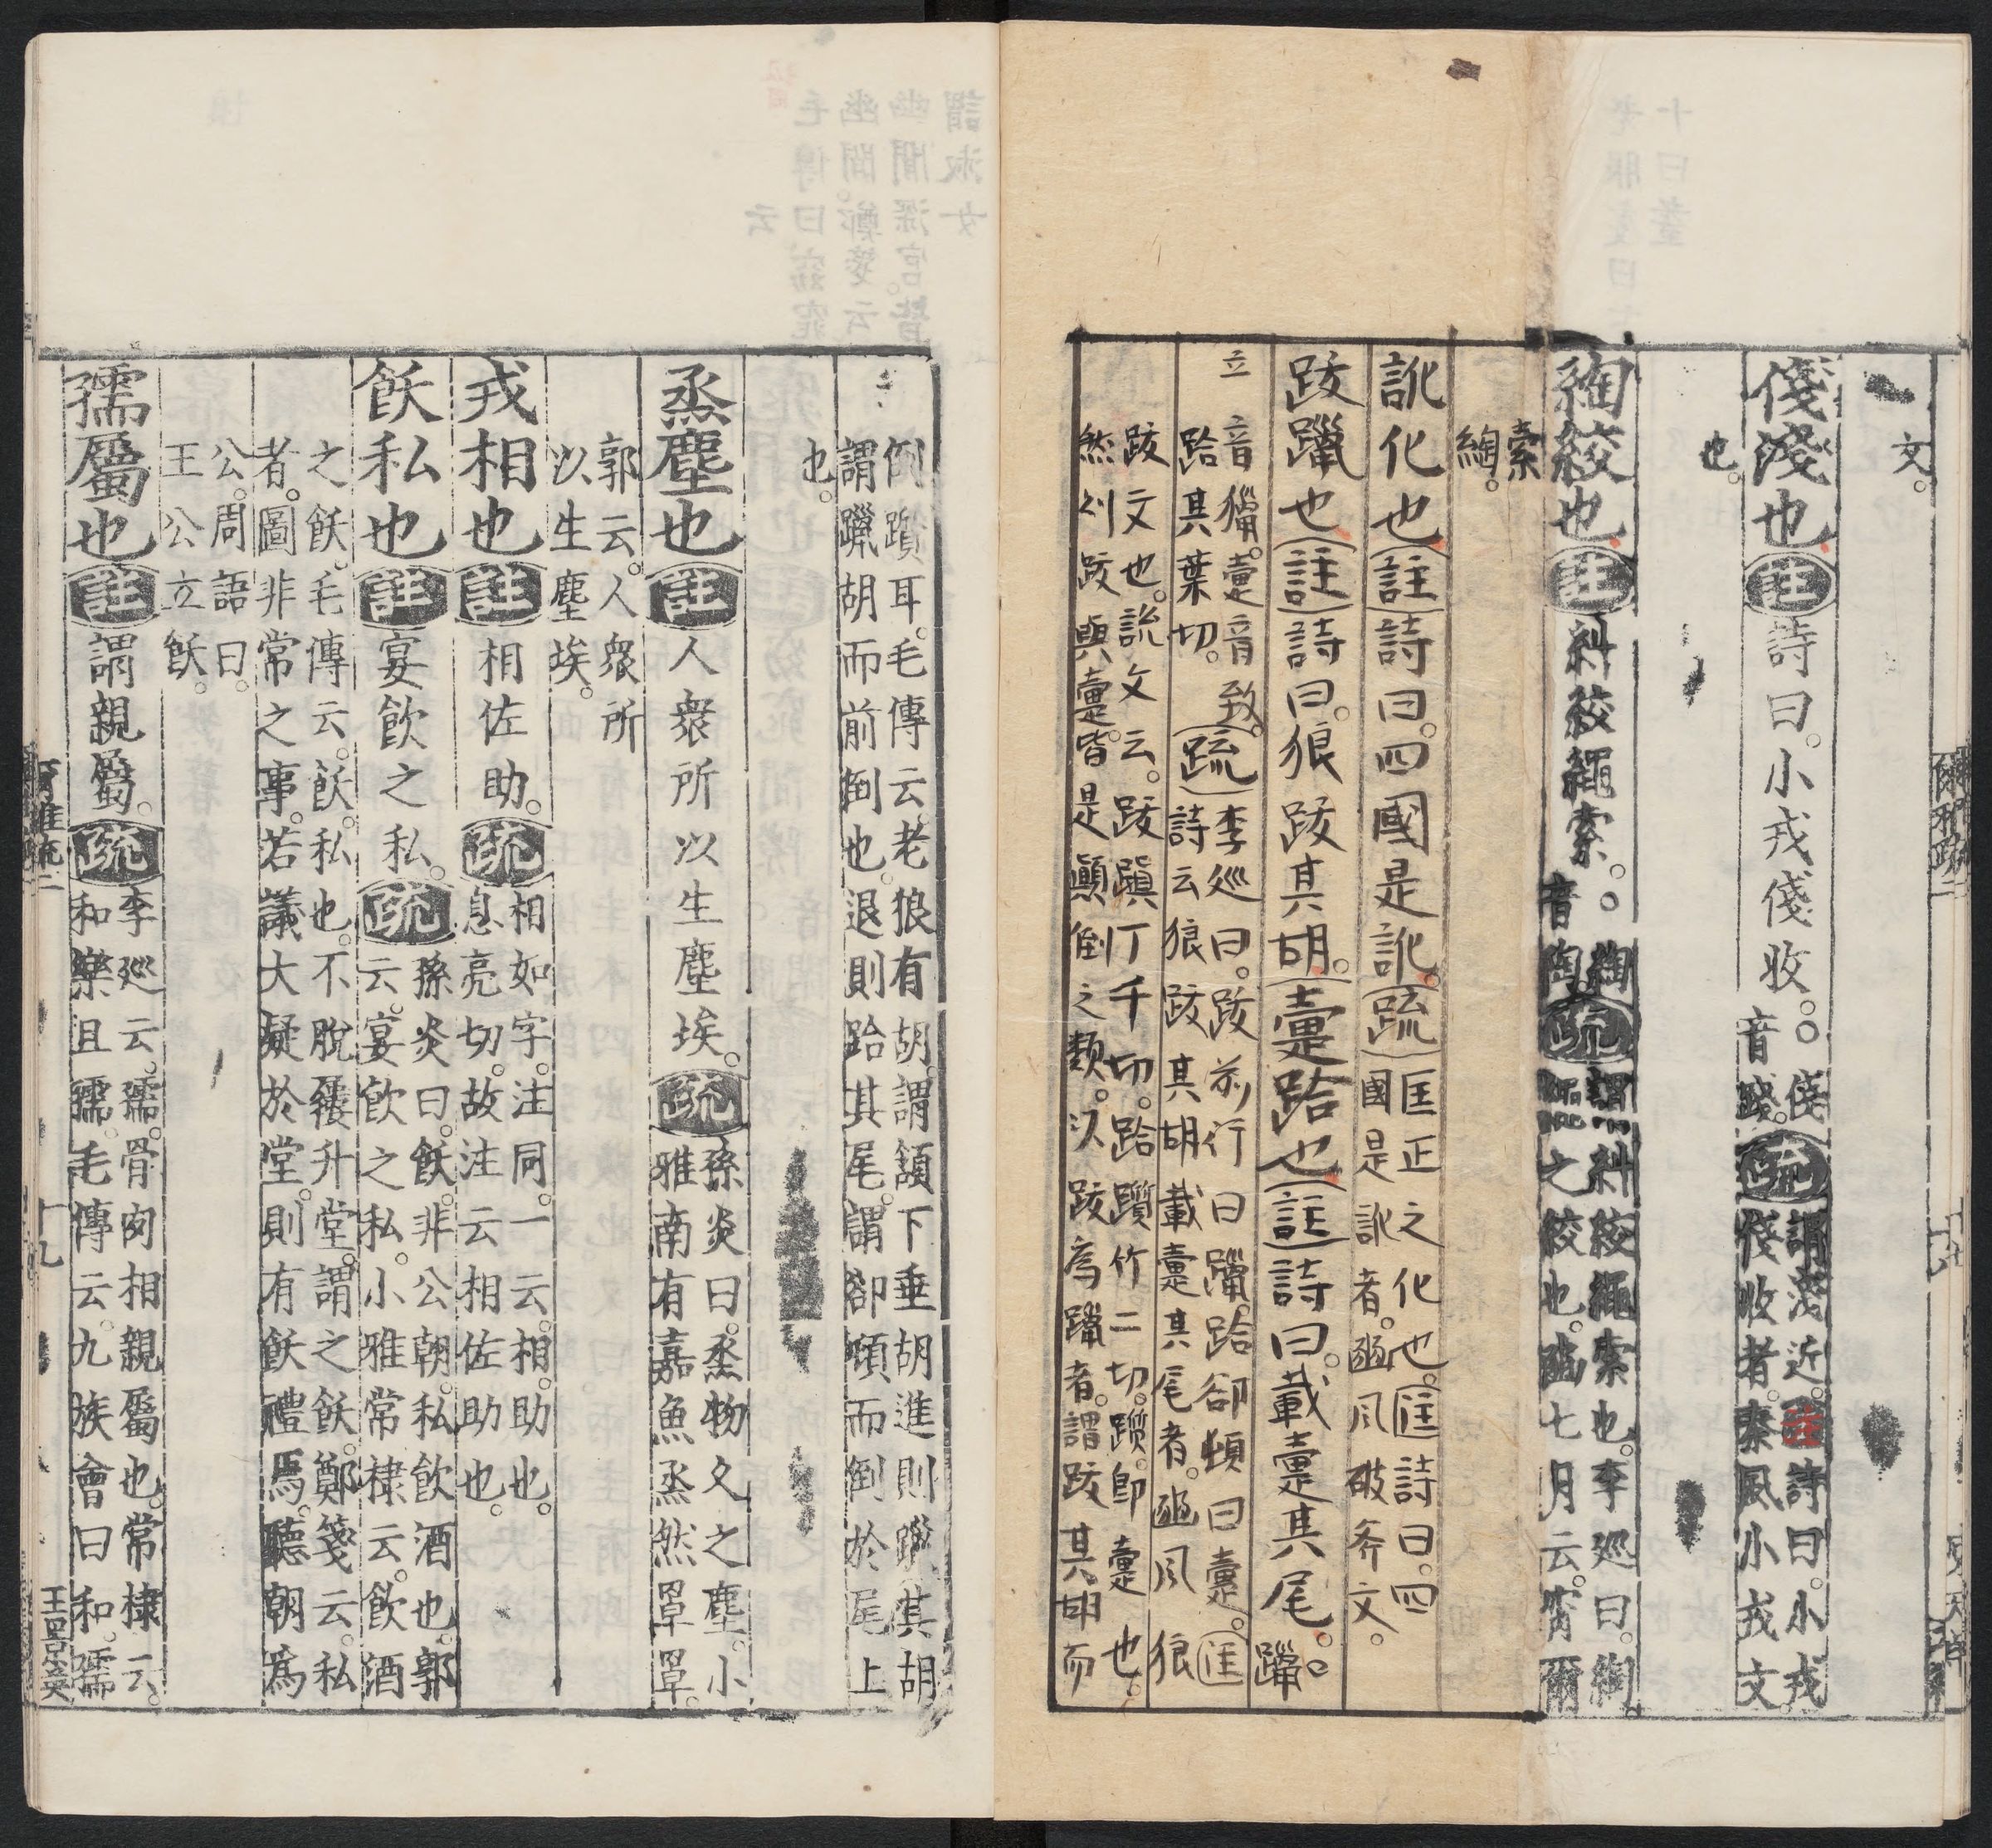 文。
俴淺也註詩曰。小戎俴收。○俴音踐。疏謂淺近。註詩曰。小戎俴收者。秦風小戎文
也。
綯絞也註糾絞繩索。○綯音陶疏謂糾絞繩索也。李巡曰。綯。繩之絞也。豳七月云。宵爾
索綯。
訛化也註詩曰。四國是訛。疏匡正之化也。匡詩曰。四國是訛者。豳風破斧文。
跋躐也註詩曰。狼跋其胡。疐跲也註詩曰。載疐其尾。○躐
音獵。疐音致。跲其葉切。疏李巡曰。跋前行曰躐。跲卻頓曰疐。匡詩云狼跋其胡載疐其尾者。豳風狼
跋文也。說文云。跋蹎丁千切。跲躓竹二切。躓。卽疐也。然則跋與疐。皆是顚倒之類。以跋爲躐者。謂跋其胡而
倒躓耳。毛傳云。老狼有胡。謂頷下垂胡進則躐其胡謂躐胡而前倒也。退則跲其尾。謂卻頓而倒於尾上
也。
烝塵也註人衆所以生塵埃。疏孫炎曰。烝物久之塵。小雅南有嘉魚烝然罩罩。
郭云。人衆所以生塵埃。
戎相也註相佐助。疏相如字。注同。一云。相。助也。息亮切。故注云相佐助也。
飫私也註宴飲之私。疏孫炎曰。飫。非公朝。私飲酒也。郭云。宴飲之私。小雅常棣云。飲酒
之飫。毛傳云。飫。私也。不脫屨升堂。謂之飫。鄭箋云。私者。圖非常之事。若議大疑於堂。則有飫禮焉。聽朝爲
公。周語曰。王公立飫。
孺屬也註謂親屬。疏李巡云。孺。骨肉相親屬也。常棣云。和樂且孺。毛傳云。九族會曰和。孺
十九